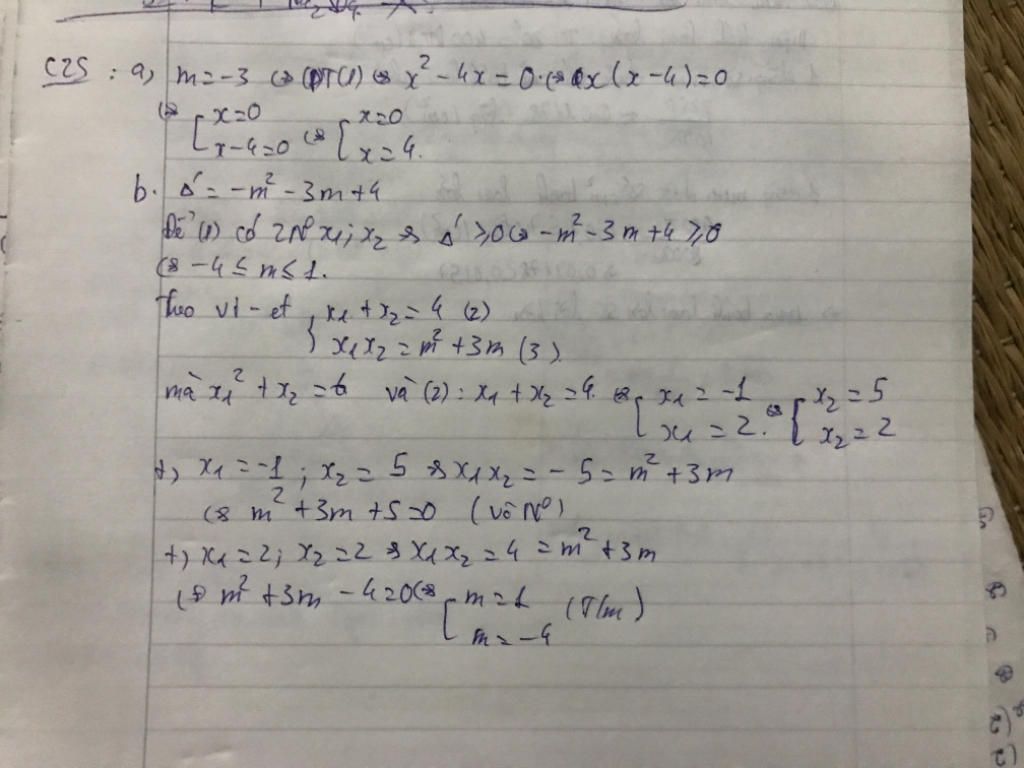 C25 : a, m = -3 ⇔ PT(1) ⇔ x² - 4x = 0 ⇔ x(x-4) = 0
⇔ [ x=0 x-4=0 ⇔ [ x=0 x=4.
b. Δ' = -m² - 3m + 4
Để (1) có 2N⁰ x₁; x₂ ⇔ Δ' ≥ 0 ⇔ -m² - 3m + 4 ≥ 0
⇔ -4 ≤ m ≤ 1.
Theo vi-et { x₁ + x₂ = 4 (2)
x₁x₂ = m² + 3m (3)
mà x₁² + x₂ = 6 và (2): x₁ + x₂ = 4. ⇔ [ x₁ = -1 x₁ = 2. ⇔ [ x₂ = 5 x₂ = 2
+, x₁ = -1; x₂ = 5 ⇔ x₁x₂ = -5 = m² + 3m
⇔ m² + 3m + 5 = 0 (vô N⁰)
+, x₁ = 2; x₂ = 2 ⇔ x₁x₂ = 4 = m² + 3m
⇔ m² + 3m - 4 = 0 ⇔ [ m = 1 m = -4 (T/m)